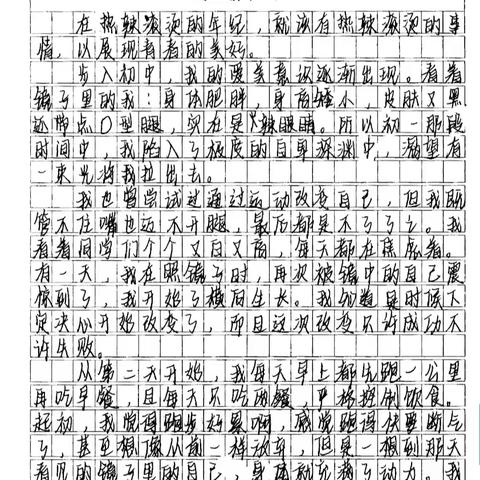 在热辣滚烫的年纪，就该有热辣滚烫的事
情，以展现青春的美好。
步入初中，我的爱美意识逐渐出现。看着
镜子里的我：身体肥胖，身高矮小，皮肤又黑
还带点O型腿，实在是辣眼睛。所以初一那段
时间中，我陷入了极度的自卑深渊中，渴望有
一束光将我拉出去。
我也曾尝试过通过运动改变自己，但我既
管不住嘴也迈不开腿，最后都是不了了之。我
看着同学们个个又白又高，每天都在焦虑着。
有一天，我在照镜子时，再次被镜中的自己震
惊到了，我开始了横向生长。我知道是时候下
定决心开始改变了，而且这次改变只许成功不
许失败。
从第二天开始，我每天早上都先跑一公里
再吃早餐，且每天只吃两餐，严格控制饮食。
起初，我觉得跑步好累啊，感觉跑得快要断气
了，甚至想像从前一样放弃，但是一想到那天
看见的镜子里的自己，身体就充满了动力。我